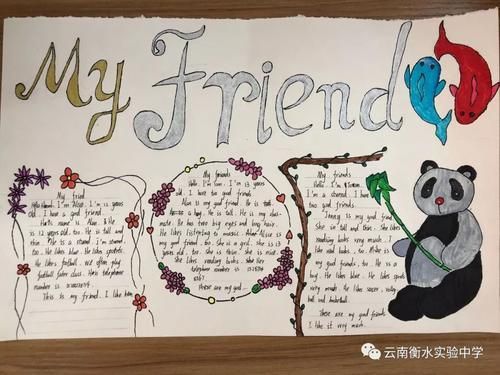 My Friend
My friend
I'm 12 years
old. I have a good friend.
His name is Alan. He
is 12 years old, too. He is tall and
thin. He is a student. I'm a student,
too. He likes blue. He likes
He likes football. We often play
football after class. His telephone
number is
This is my friend. I like him
My friends
Hello. I'm Sam. I'm 13 years
old. I have two good friends.
Alan is my good friend. He is tall.
a boy. He is tall. He is my class-
mate. He has two big eyes and long hair.
He likes listening to music. Alice is
my good friend, too. She is a girl. She is 13
years old, too. She is thin. She is nice.
She likes reading books. She her
telephone number is
These are my good
My friends
Hello. I'm
I'm a student. I have
two good friends.
is my good friend.
She is tall and thin. She likes
reading books very much. I
like read books, too. Mike is
my good friends, too. He is a
boy. He likes blue. He likes sports
very much. He likes soccer, volley
ball and basketball.
These are my good friends
I like it very much.
云南衡水实验中学